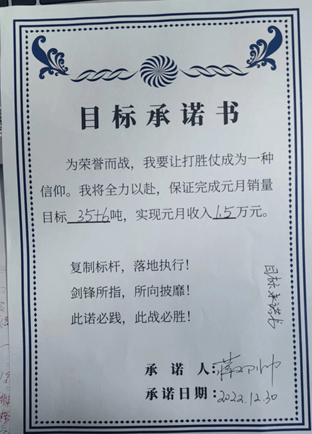 目标承诺书
为荣誉而战，我要让打胜仗成为一种
信仰。我将全力以赴，保证完成元月销量
目标 35+6 吨，实现元月收入 1.5 万元。
复制标杆，落地执行！
剑锋所指，所向披靡！
此诺必践，此战必胜！
目标承诺书
承 诺 人：
承诺日期：2022.12.30